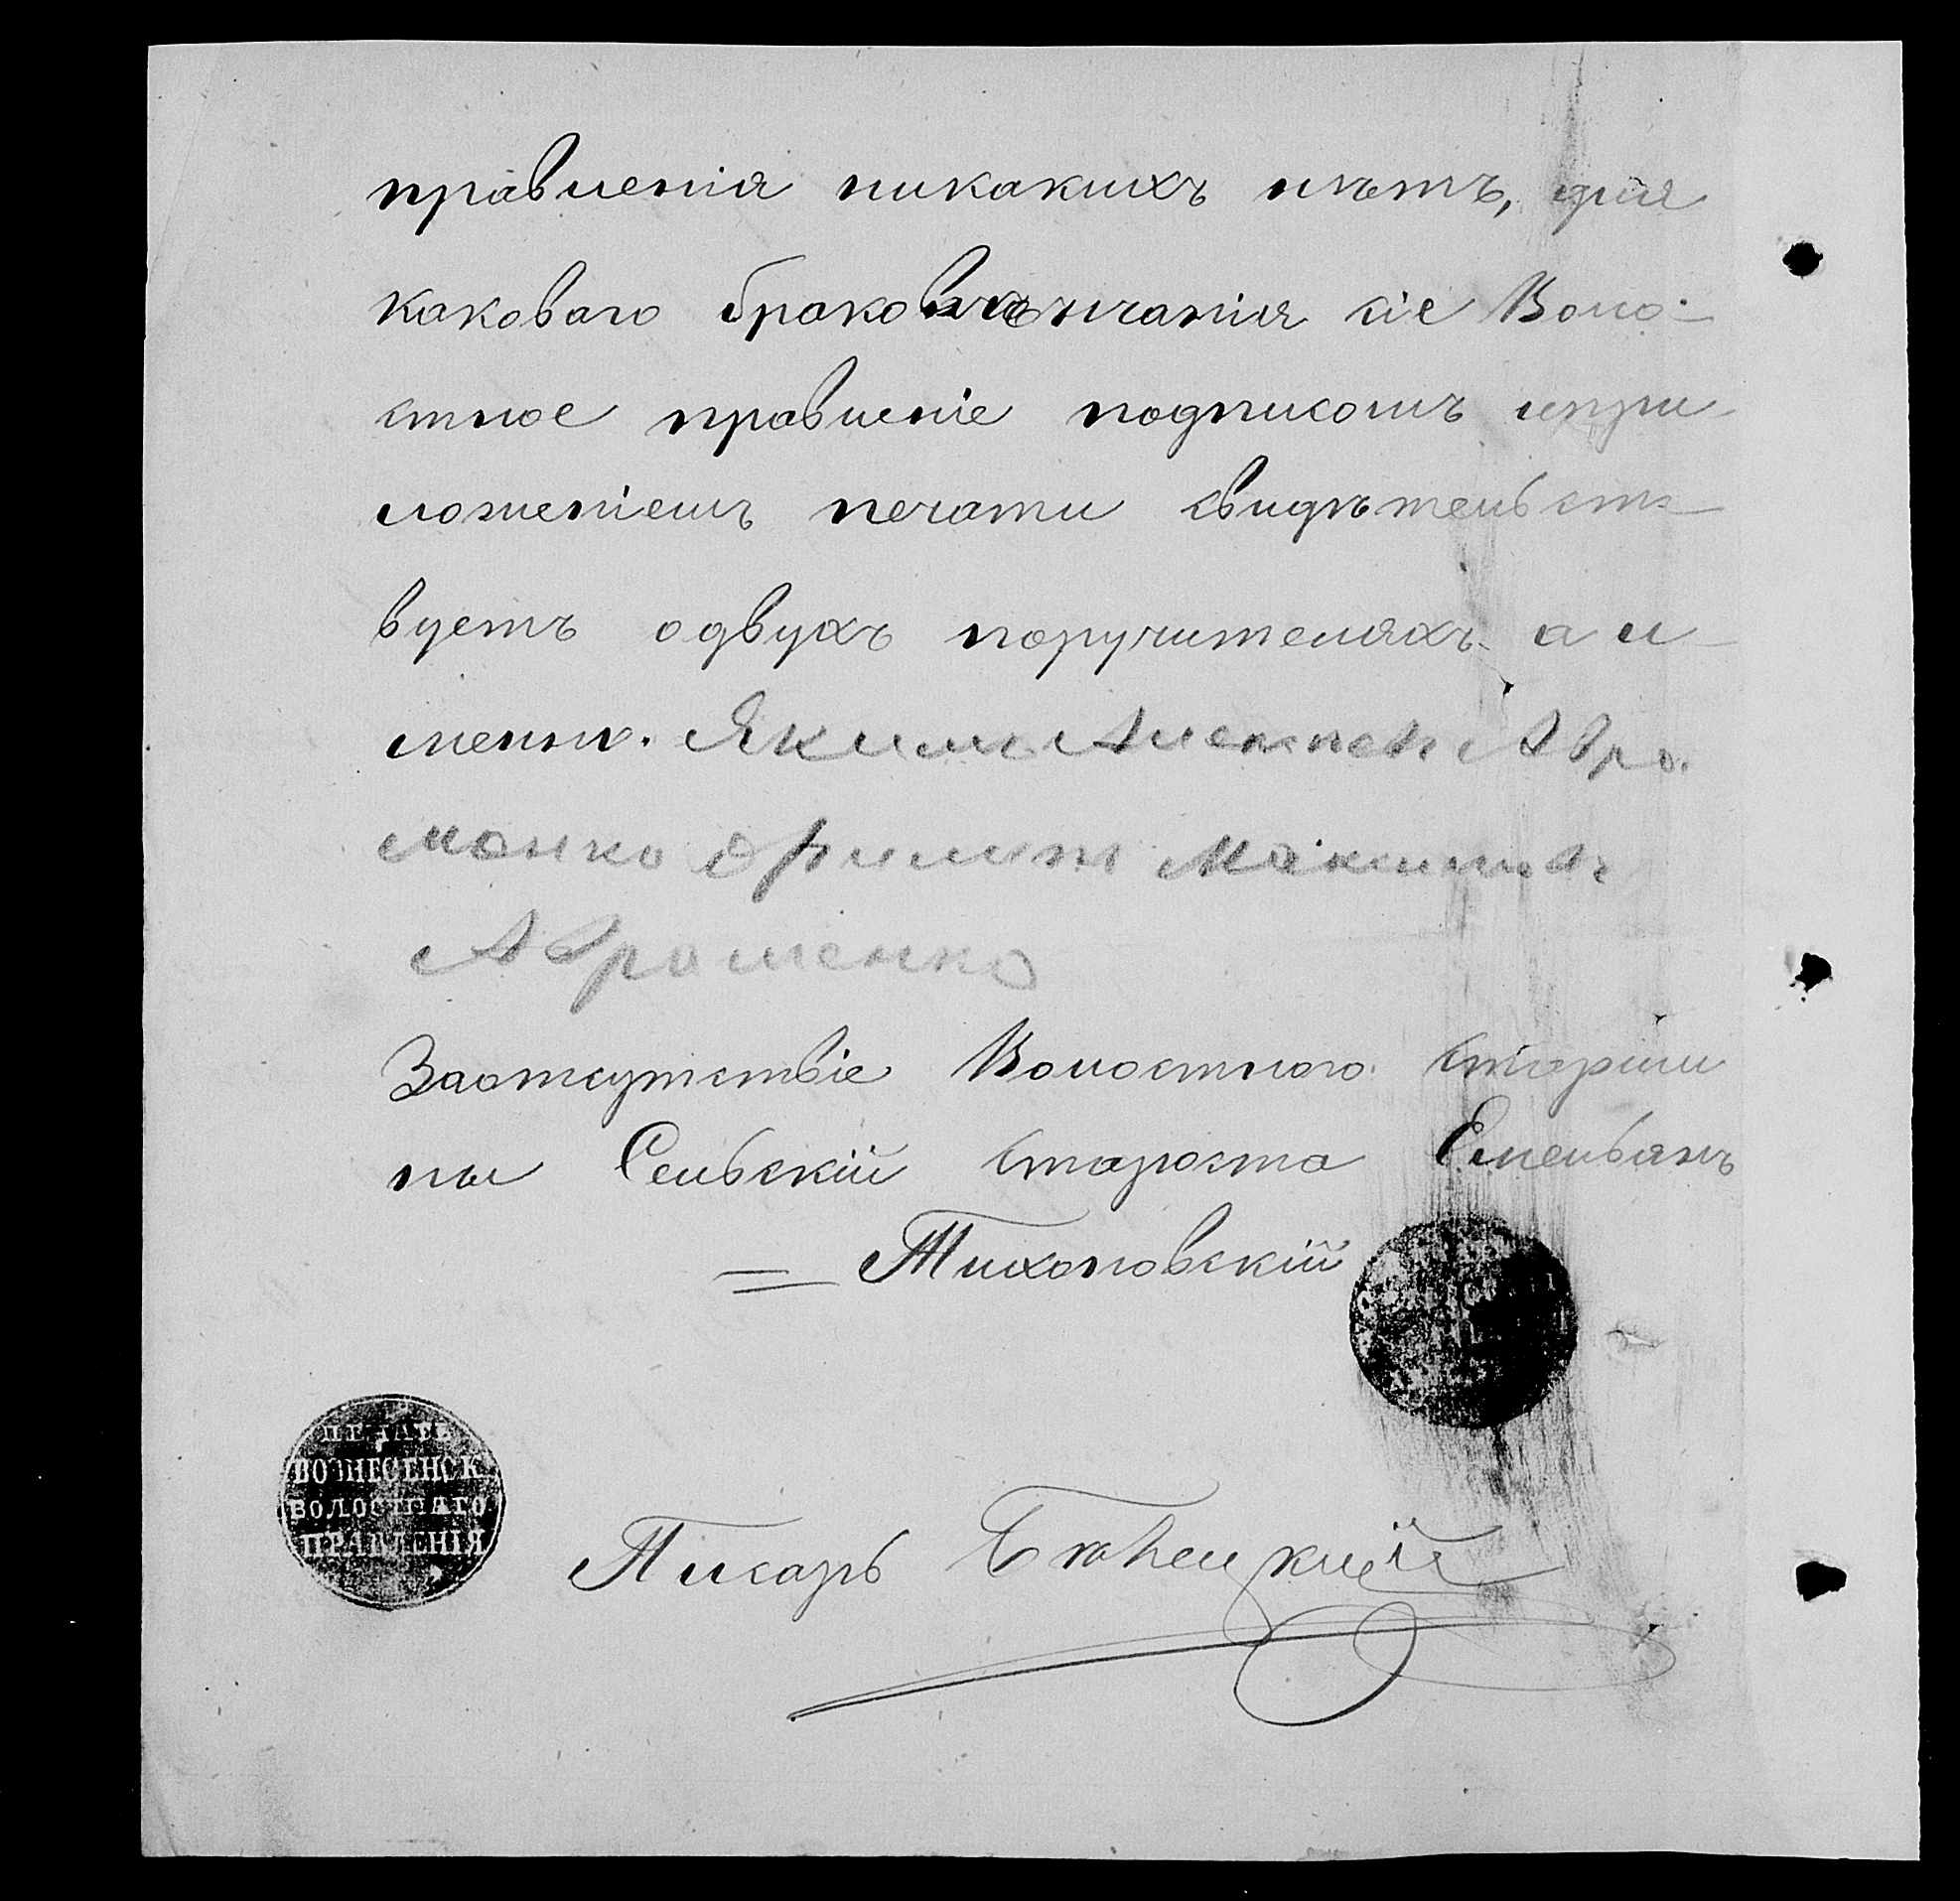 правленія никакихъ нѣтъ, для
каковаго браковѣнчанія сіе Воло-
стное правленіе подписомъ ипри-
ложеніемъ печати свидѣтельст-
вуетъ одвухъ поручителяхъ а и-
менно. Яким Авро.
менко Филип Максимов
Авроменко
Заотсутствіе Волостного Старши
ны Сельскій Староста Емельянъ
Тихоновскій
ПЕЧАТЬ
ВОЗНЕСЕНСК.
ВОЛОСТНАГО
ПРАВЛЕНІЯ
Писарь